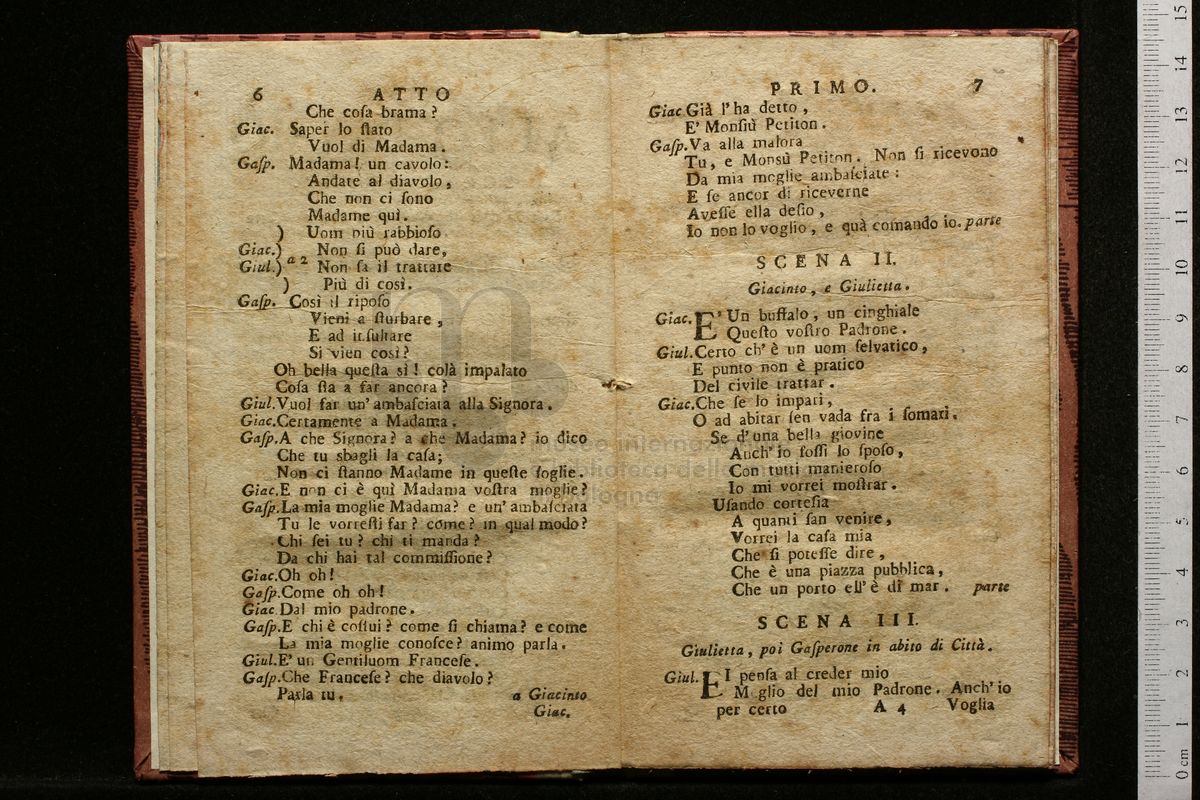 6 ATTO
Che coſa brama?
Giac. Saper lo ſtato
Vuol di Madama.
Gaſp. Madama! un cavolo:
Andate al diavolo,
Che non ci ſono
Madame quì.
) Uom più rabbioſo
Giac.) Non ſi può dare,
Giul.) a 2 Non ſa il trattare
) Più di così.
Gaſp. Così il ripoſo
Vieni a ſturbare,
E ad inſultare
Si vien così?
Oh bella queſta sì! colà impalato
Coſa ſta a far ancora?
Giul. Vuol far un' ambaſciata alla Signora.
Giac. Certamente a Madama.
Gaſp. A che Signora? a che Madama? io dico
Che tu sbagli la caſa;
Non ci ſtanno Madame in queſte ſoglie.
Giac. E non ci è quì Madama voſtra moglie?
Gaſp. La mia moglie Madama? e un' ambaſciata
Tu le vorreſti far? come? in qual modo?
Chi ſei tu? chi ti manda?
Da chi hai tal commiſſione?
Giac. Oh oh!
Gaſp. Come oh oh!
Giac. Dal mio padrone.
Gaſp. E chi è coſtui? come ſi chiama? e come
La mia moglie conoſce? animo parla.
Giul. E' un Gentiluom Franceſe.
Gaſp. Che Franceſe? che diavolo?
Parla tu. a Giacinto
Giac.
PRIMO. 7
Giac. Già l' ha detto,
E' Monſiù Petiton.
Gaſp. Va alla malora
Tu, e Monsù Petiton. Non ſi ricevono
Da mia moglie ambaſciate:
E ſe ancor di riceverne
Aveſſe ella deſio,
Io non lo voglio, e quà comando io. parte
SCENA II.
Giacinto, e Giulietta.
Giac. E' Un buffalo, un cinghiale
Queſto voſtro Padrone.
Giul. Certo ch' è un uom ſelvatico,
E punto non è pratico
Del civile trattar.
Giac. Che ſe lo impari,
O ad abitar ſen vada fra i ſomari.
Se d' una bella giovine
Anch' io foſſi lo ſpoſo,
Con tutti manieroſo
Io mi vorrei moſtrar.
Uſando corteſia
A quanti ſan venire,
Vorrei la caſa mia
Che ſi poteſſe dire,
Che è una piazza pubblica,
Che un porto ell' è di mar. parte
SCENA III.
Giulietta, poi Gaſperone in abito di Città.
Giul. EI penſa al creder mio
Meglio del mio Padrone. Anch' io
per certo A 4 Voglia